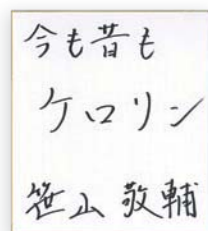 今も昔も
ケロリン
笹山敬輔